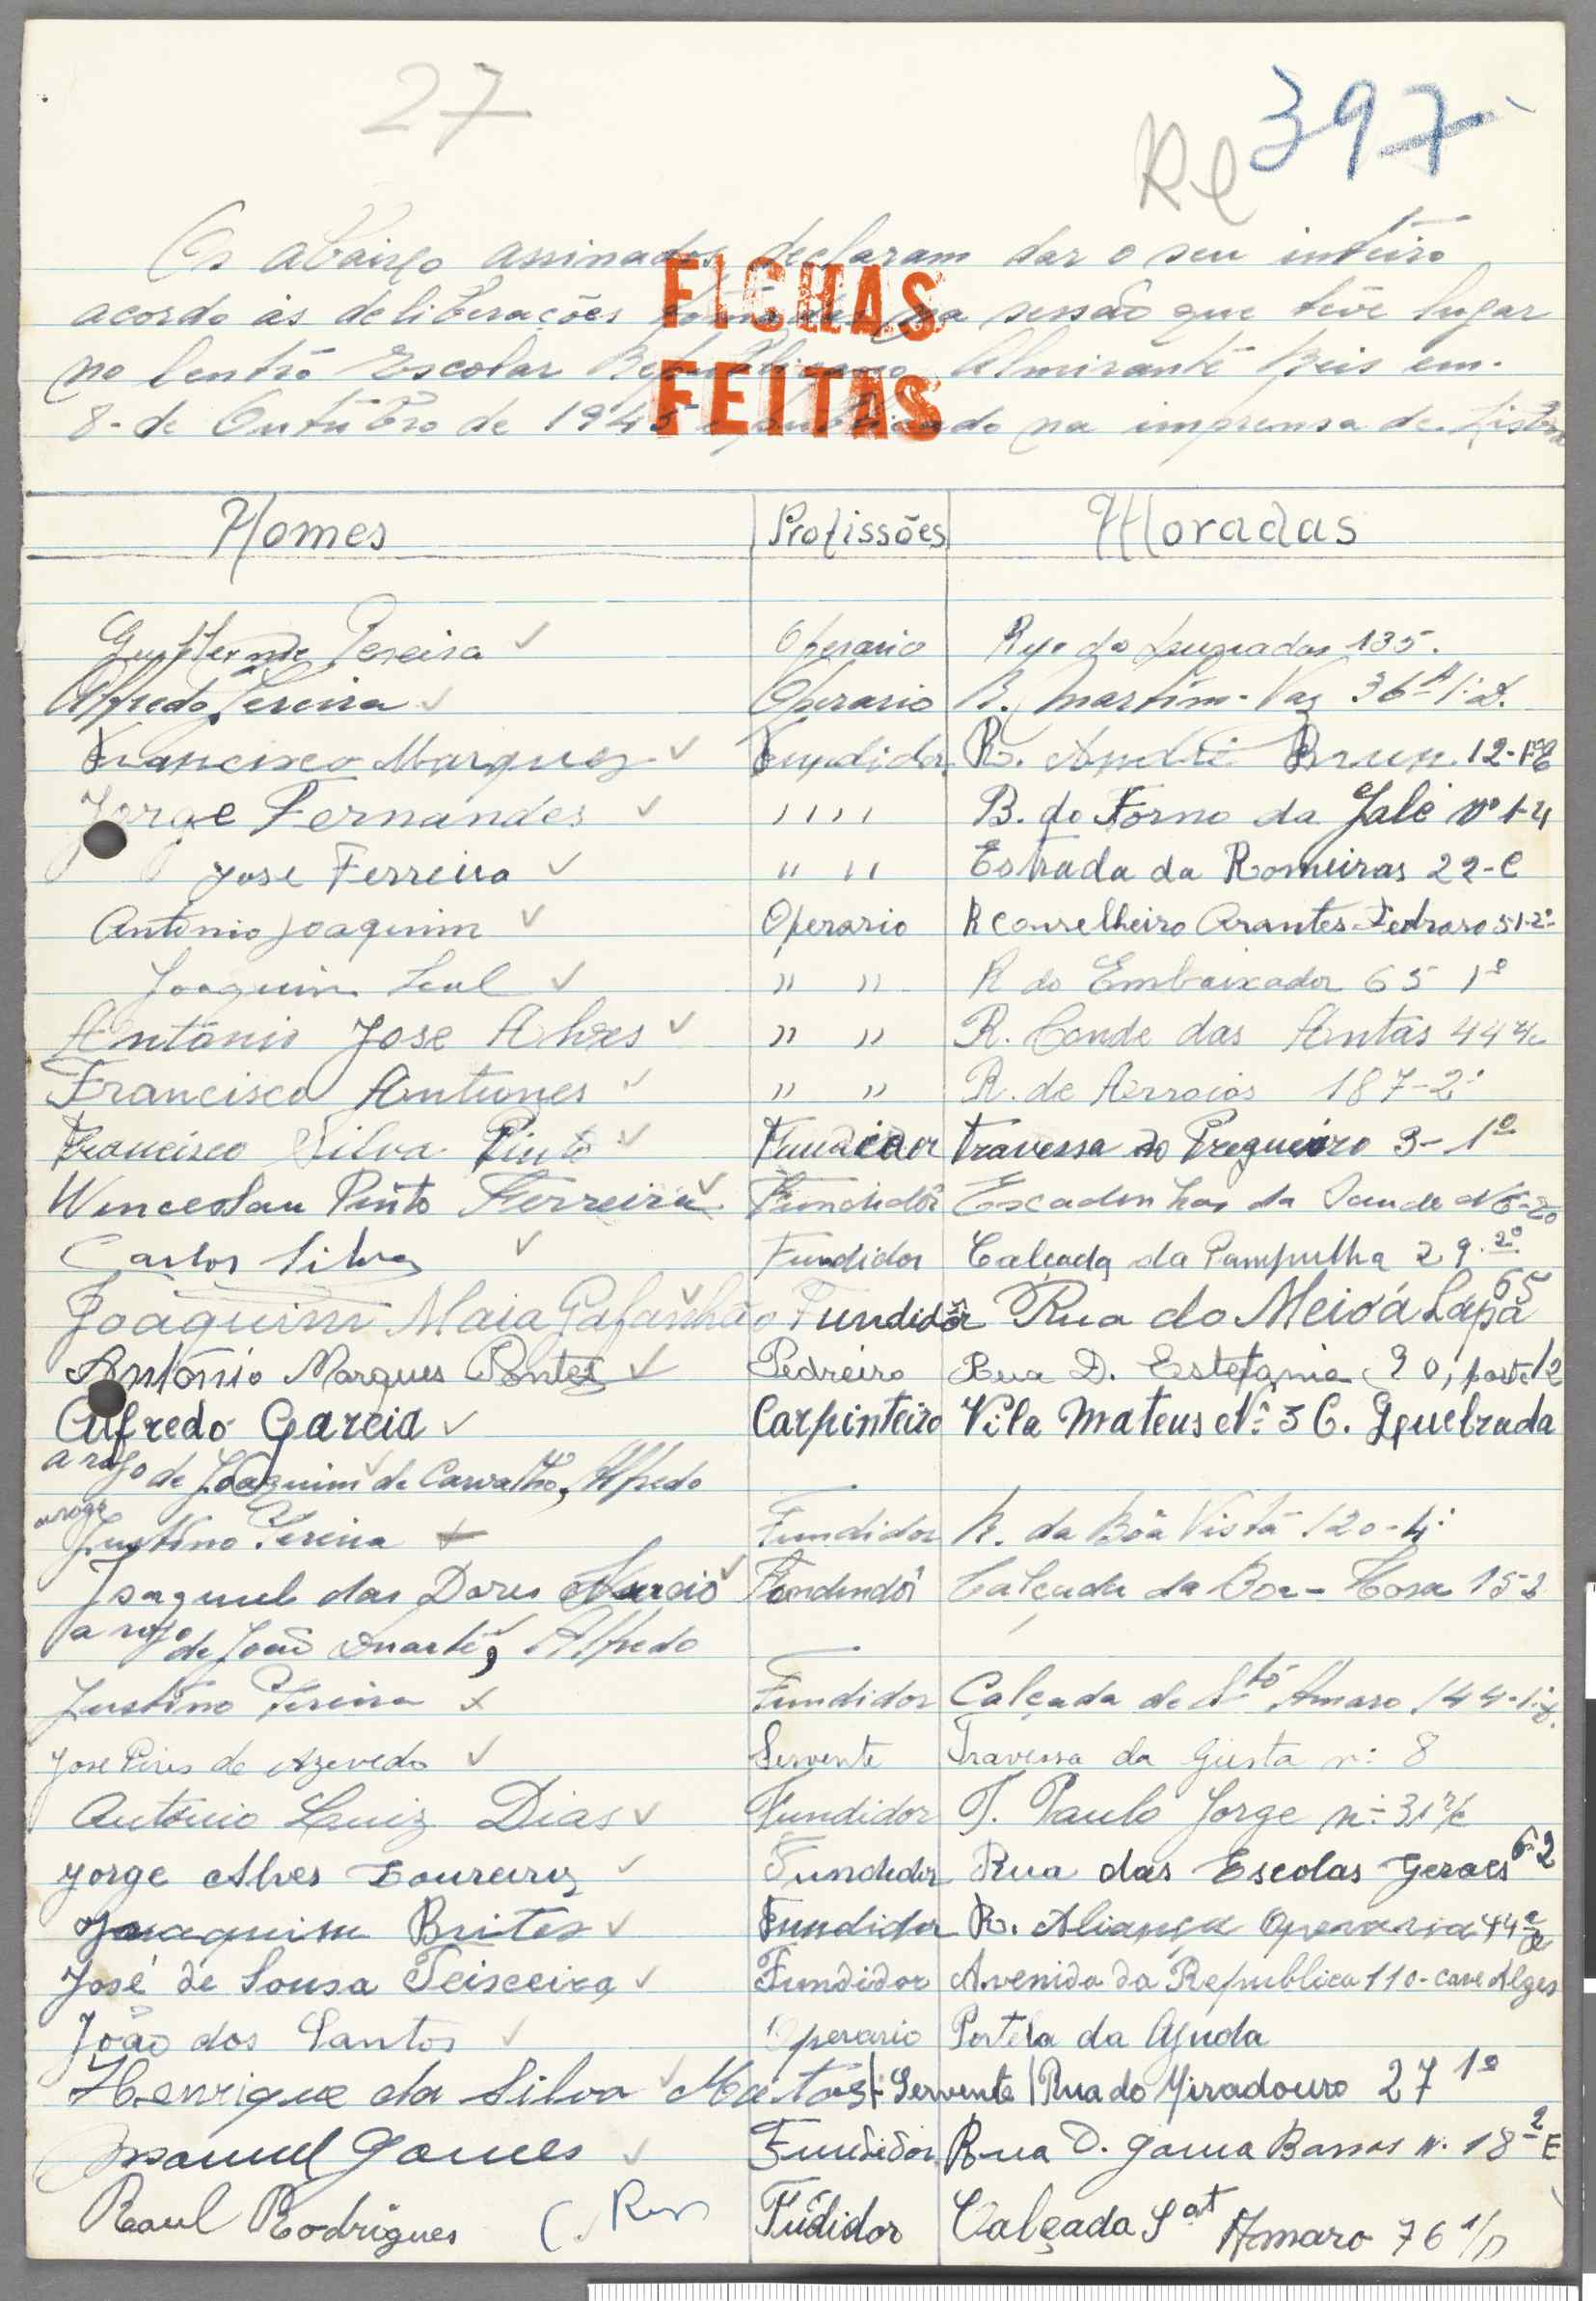 27
Re 397
Os abaixo assinados, declaram dar o seu inteiro
acordo às deliberações tomadas na sessão que teve lugar
no Centro Escolar Republicano Almirante Reis em
8 de Outubro de 1945 e publicado na imprensa de Lisboa
FICHAS
FEITAS
Nomes Profissões Moradas
Pereira Operario 135.
Alfredo Pereira Operario R. Martim-Vaz 36 A 1º D.
Francisco Marques Fundidor R. André Brun 12-1º E
Jorge Fernandes ,,,, B. do Forno da Galé nº 1-4
Jose Ferreira " " Estrada da Romeiras 22-C
Antonio Joaquim Operario R Conselheiro Arantes Pedroso 51-2º
Joaquim Leal " " R do Embaixador 65 1º
Antonio Jose Alves " " R. Conde das Antas 44 r/c
Francisco Antunes " " R. de Arroios 187-2º
Francisco Silva Pinto Fundidor Travessa do Pregueiro 3-1º
Wenceslau Pinto Ferreira Fundidôr Escadinhas da Saude
Carlos Silva Fundidor Calçada da Pampulha 29. 2º
Joaquim Maia Gafanhão Fundidôr Rua do Meio á Lapa 65
António Marques Pontes Pedreiro Rua D. Estefania 20, porta 12
Alfredo Garcia Carpinteiro Vila Mateus Nº 3 C. Quebrada
a rogo de Joaquim de Carvalho, Alfredo
a rogo
Justino Pereira Fundidor R. da Bôa Vista 120-4º
das Dores Fundidôr Calçada da Boa-Hora 152
a rogo de João Duarte, Alfredo
Justino Pereira Fundidor Calçada de Stº Amaro 144-1º D.
Jose Pires de Azevedo Servente Travessa da Giesta nº 8
António Luiz Dias Fundidor T. Paulo Jorge nº 31 r/c
Jorge Alves Loureiro Fundidor Rua das Escolas Geraes 62
Joaquim Brites Fundidor R. Aliança Operaria 44
José de Sousa Teisceira Fundidor Avenida da Republica 110-cave Alges
João dos Santos Operario Portela da Ajuda
Henrique da Silva Matos Servente Rua do Miradouro 27 1º
Manuel Gomes Fundidor Rua D. Gama Barros n. 18 2 E
Raul Rodrigues Fũdidor Calçada Sat Amaro 76 1/D